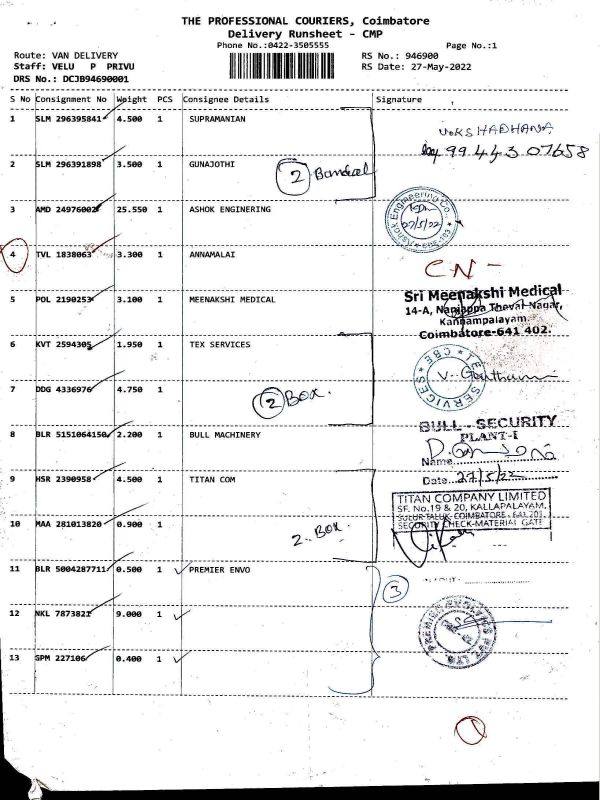 THE PROFESSIONAL COURIERS, Coimbatore
Delivery Runsheet - CMP
Phone No.:0422-3505555
Page No.:1
Route: VAN DELIVERY
RS No.: 946900
Staff: VELU P PRIVU
RS Date: 27-May-2022
DRS No.: DCJB94690001
S No Consignment No Weight PCS Consignee Details Signature
1 SLM 296395841 4.500 1 SUPRAMANIAN
99443 07658
2 SLM 296391898 3.500 1 GUNAJOTHI
2
3 AMD 24976002 25.550 1 ASHOK ENGINERING
Ashok Engineering Co.,
27/5/22
4 TVL 1838063 3.300 1 ANNAMALAI
CN -
5 POL 2190253 3.100 1 MEENAKSHI MEDICAL
Sri Meenakshi Medical
14-A, Nanjappa Thevar Nagar,
Kannampalayam.
Coimbatore-641 402.
6 KVT 2594305 1.950 1 TEX SERVICES
TEX SERVICES CBE
V. Gouthami
7 DDG 4336976 4.750 1
2 Box.
8 BLR 5151064150 2.200 1 BULL MACHINERY
BULL - SECURITY
PLANT-I
Name
Date 27/5/22
9 HSR 2390958 4.500 1 TITAN COM
TITAN COMPANY LIMITED
SF. No.19 & 20, KALLAPALAYAM,
SULUR TALUK, COIMBATORE - 641 201.
SECURITY CHECK-MATERIAL GATE
10 MAA 281013820 0.900 1
2. Box
11 BLR 5004287711 0.500 1 PREMIER ENVO
3
12 NKL 7873821 9.000 1
13 SPM 227106 0.400 1
1